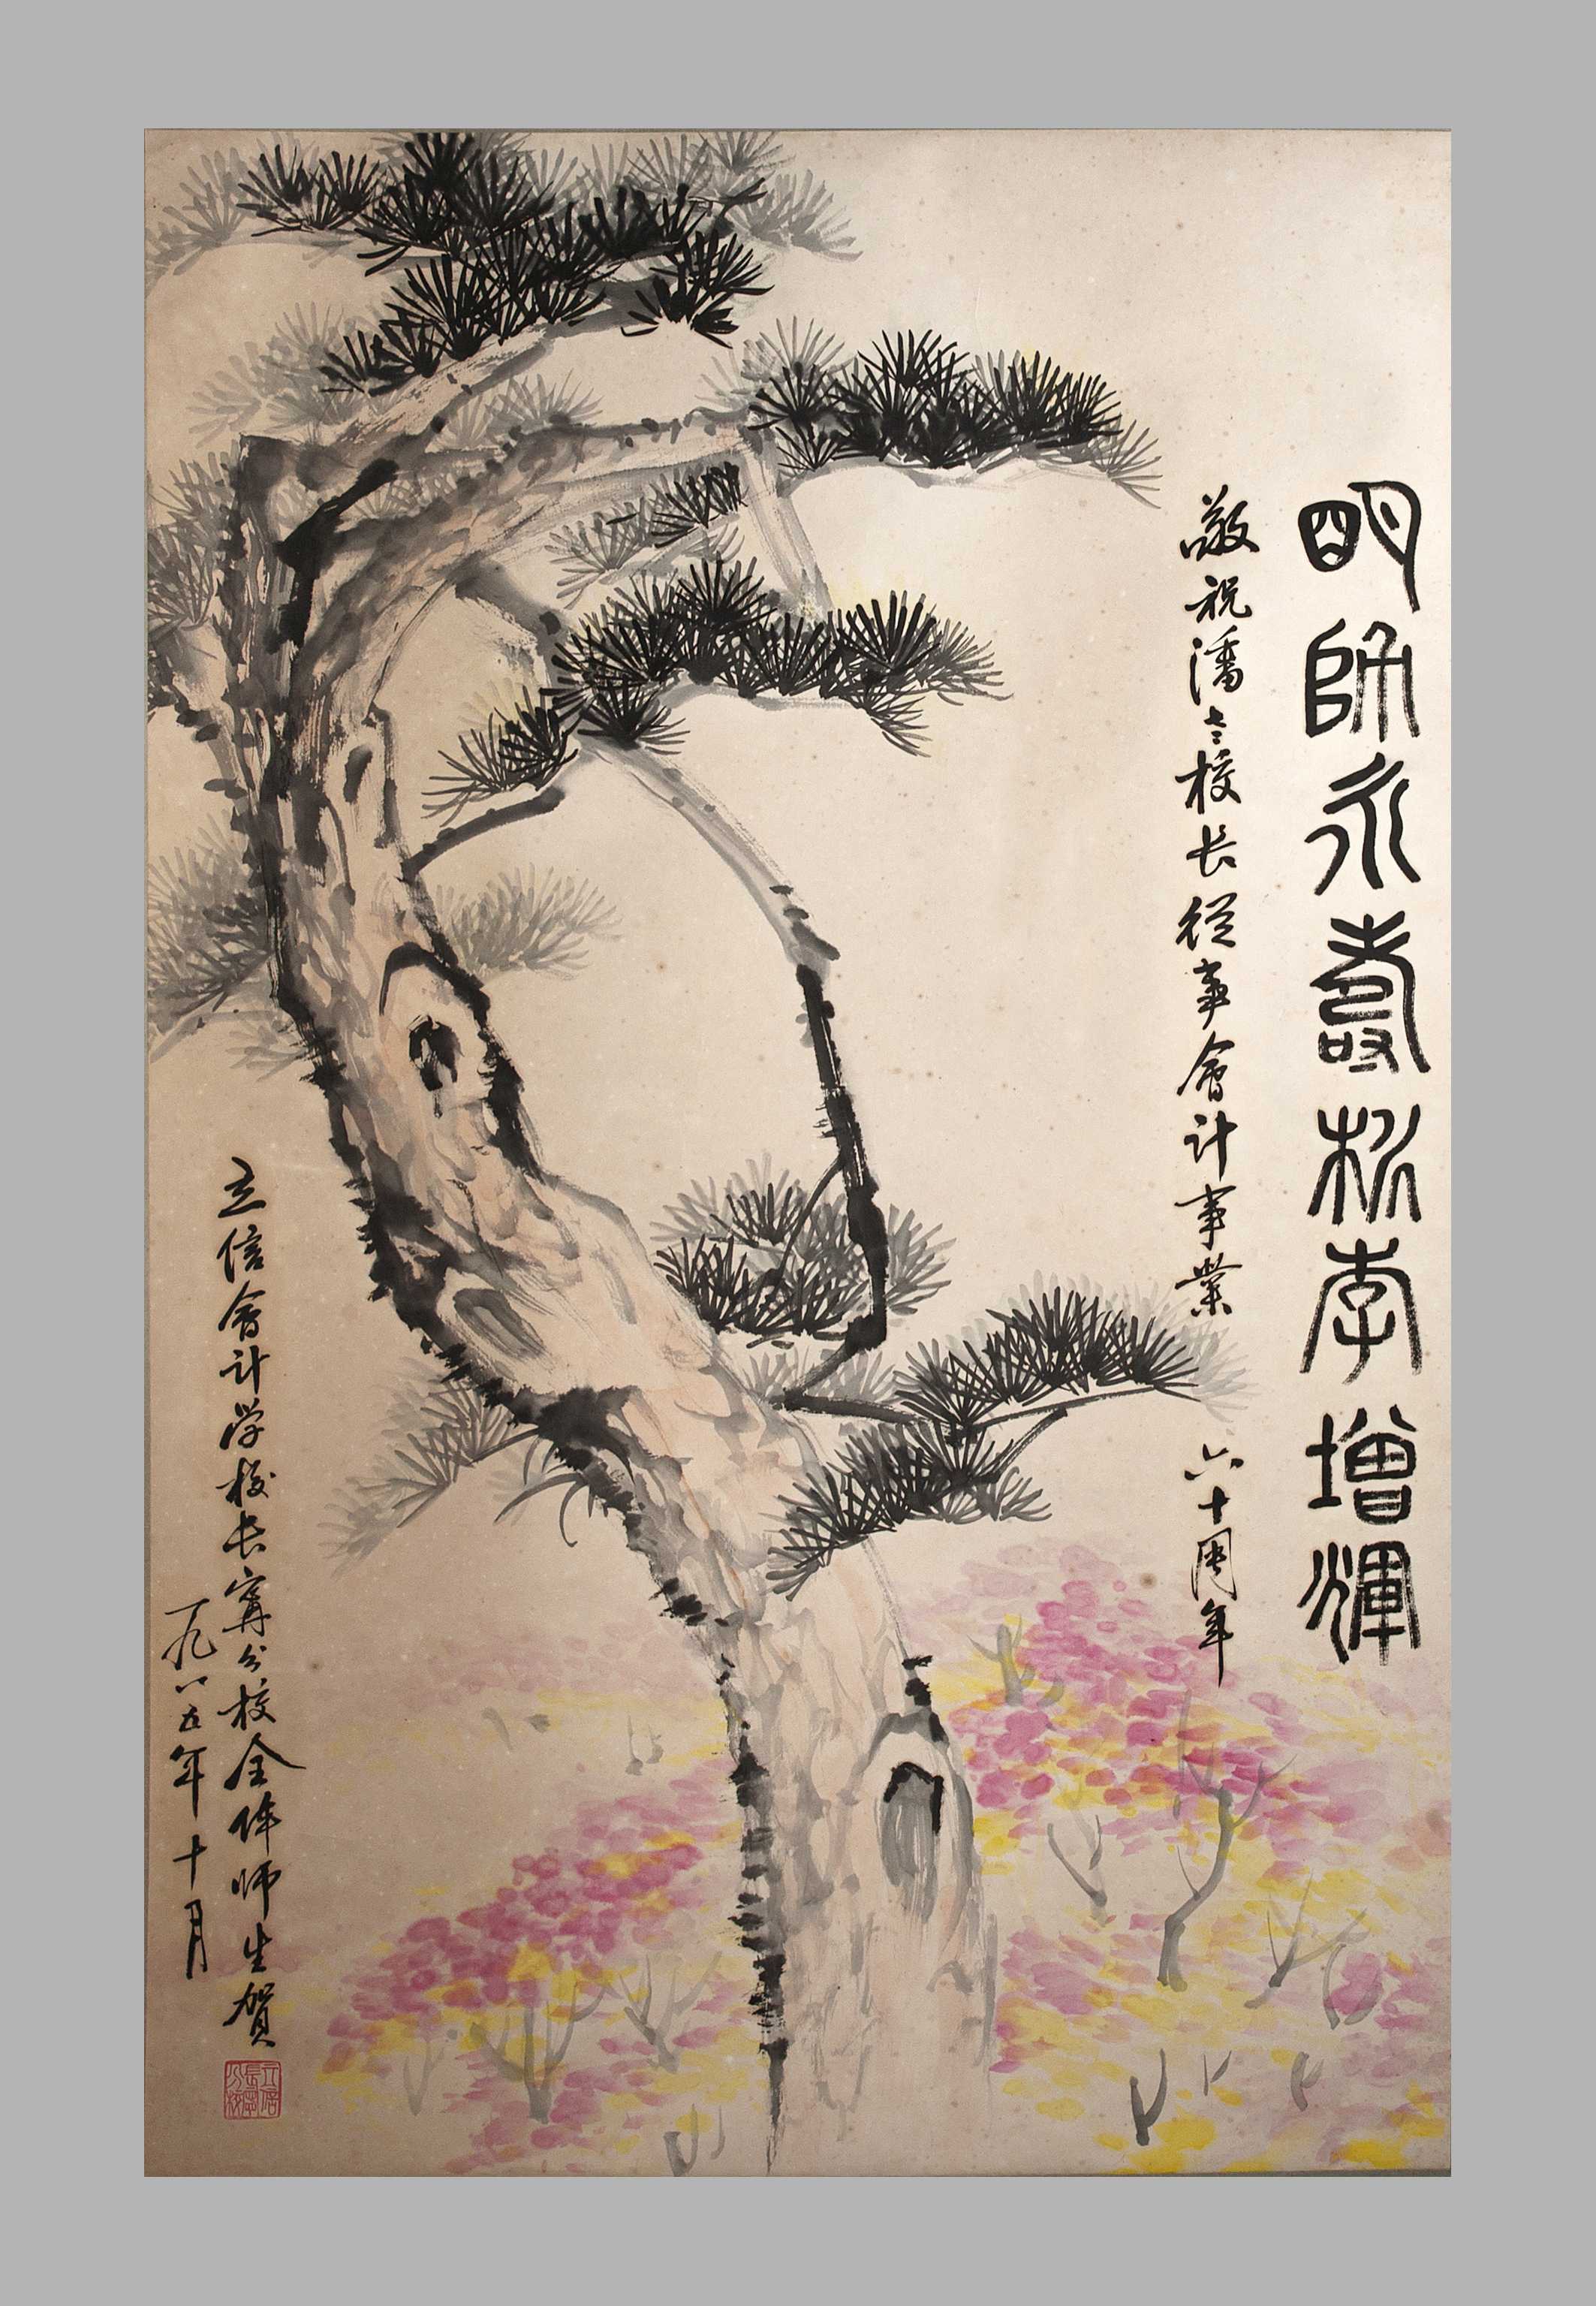 明師永壽松李增輝
敬祝潘老校长從事會计事業六十周年
立信會计学校长寧分校全体师生賀
一九八五年十月
立信長寧分校